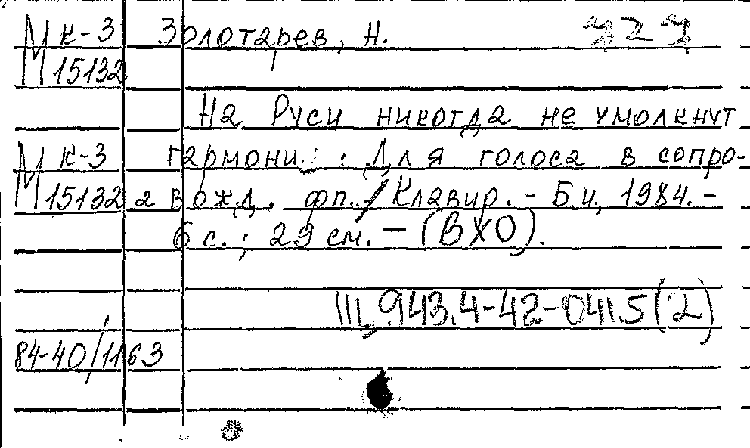 М к-3 Золотарев, Н. 727
М 15132
На Руси никогда не умолкнут
М к-3 гармони. : Для голоса в сопро-
М 15132 а вожд. фп. / Клавир. - Б.и, 1984. -
6 с. ; 29 см. - (ВХО).
Ш, 943.4-42-041.5(2)
84-40/1163